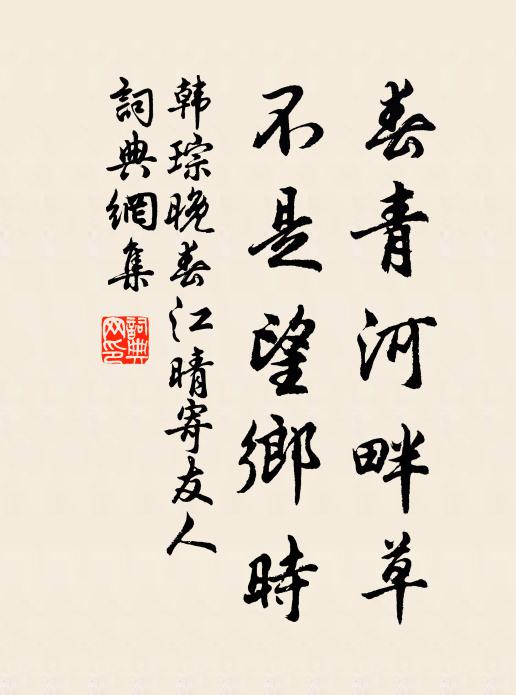 春青河畔草
不是望鄉時
韩琮晚春江晴寄友人
詞典網集
詞典网印